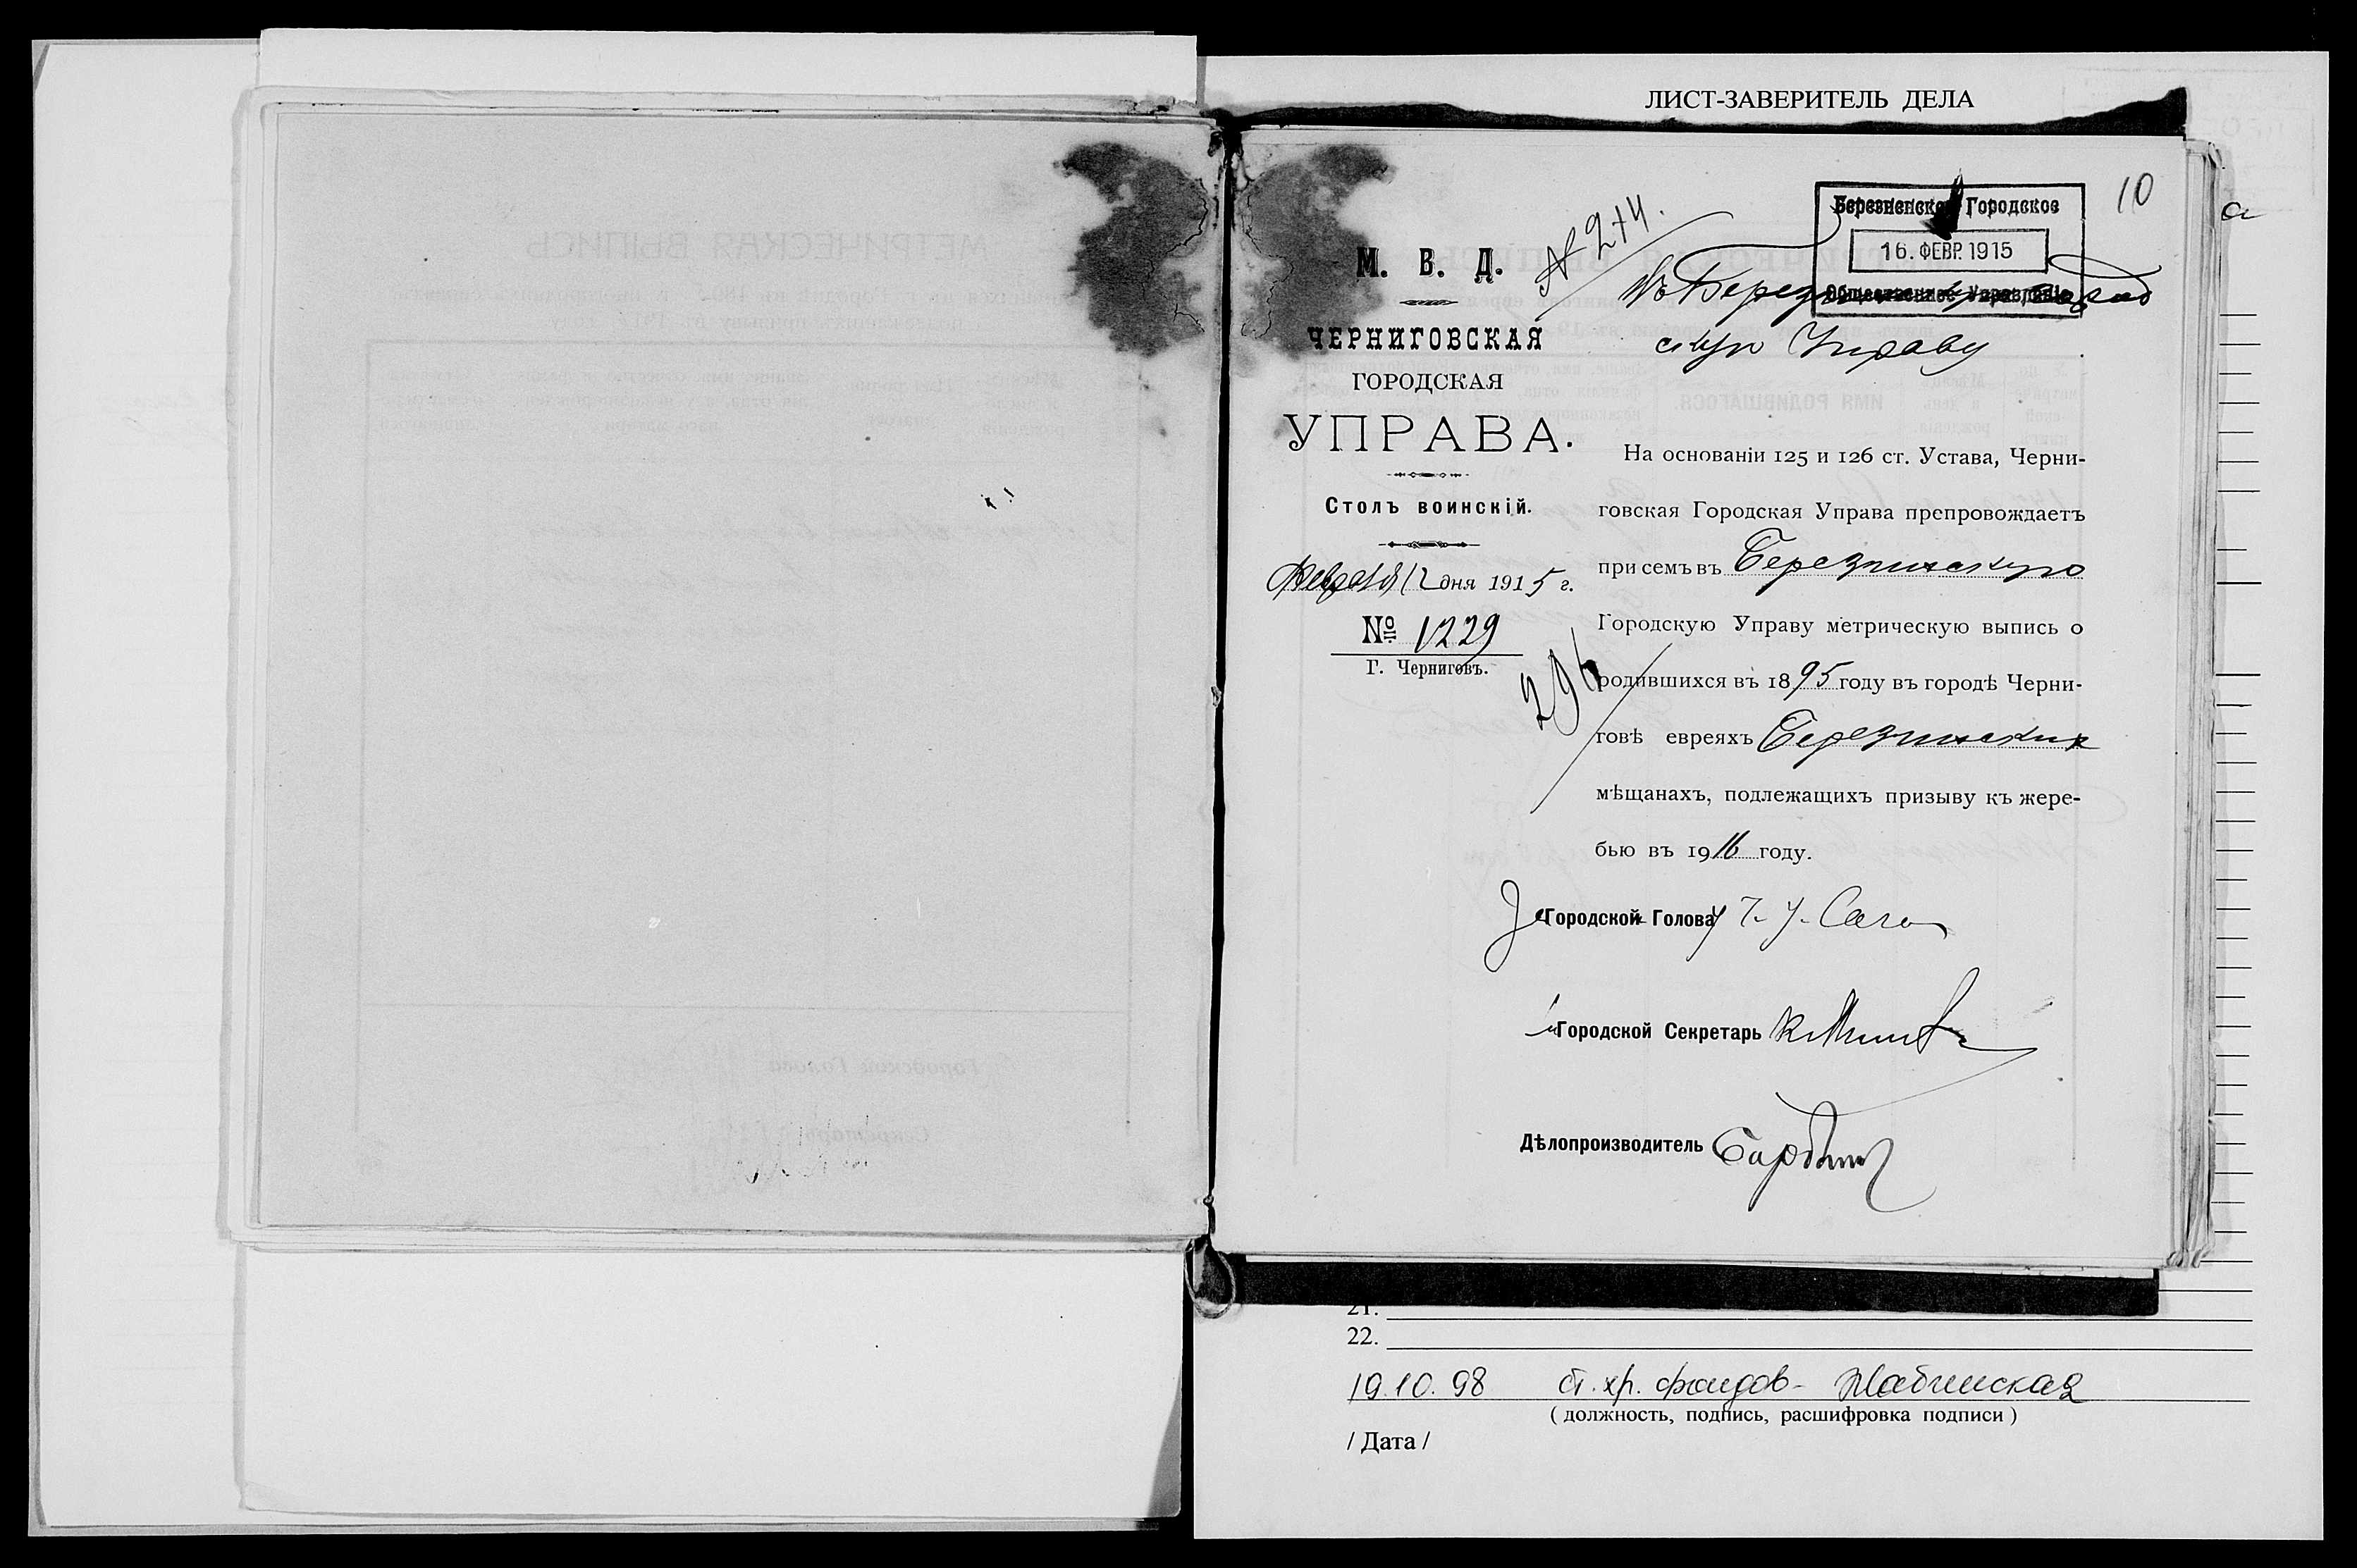 ЛИСТ-ЗАВЕРИТЕЛЬ ДЕЛА
10
Березненское Городское
16. ФЕВР. 1915
Общественное Управленіе
№ 274.
М. В. Д.
ЧЕРНИГОВСКАЯ
ГОРОДСКАЯ
УПРАВА.
Столъ воинскій.
Февраля 12 дня 1915 г.
№ 1229
Г. Черниговъ.
296
Въ Березинскую Город
скую Управу
На основаніи 125 и 126 ст. Устава, Черни-
говская Городская Управа препровождаетъ
при семъ въ Березинскую
Городскую Управу метрическую выпись о
родившихся въ 1895 году въ городѣ Черни-
говѣ евреяхъ Березинских
мѣщанахъ, подлежащихъ призыву къ жере-
бью въ 1916 году.
За Городской Голова
Городской Секретарь
Дѣлопроизводитель
21.
22.
19.10.98 ст. хр. фондов-
( должность, подпись, расшифровка подписи )
/ Дата /